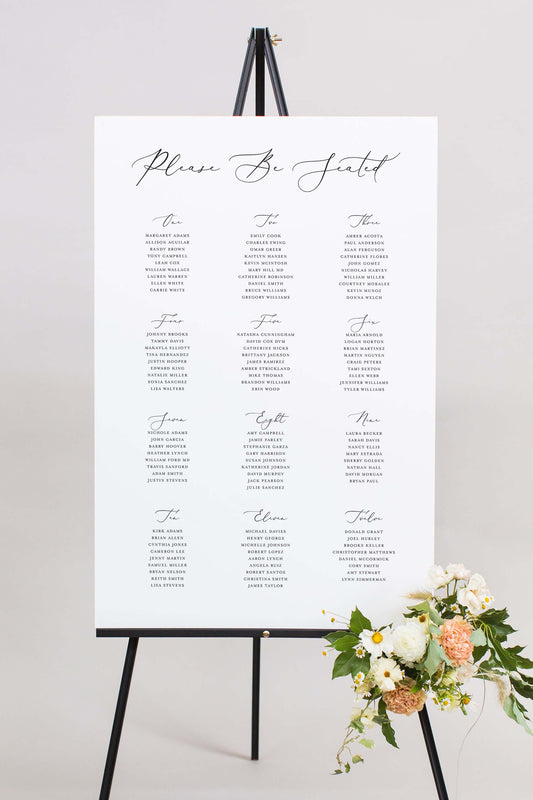 Please Be Seated
One
MARGARET ADAMS
ALLISON AGUILAR
RANDY BROWN
TONY CAMPBELL
LEAH COX
WILLIAM WALLACE
LAUREN WARREN
ELLEN WHITE
CARRIE WHITE
Two
EMILY COOK
CHARLES EWING
OMAR GREER
KAITLYN HANSEN
KEVIN MCINTOSH
MARY HILL MD
CATHERINE ROBINSON
DANIEL SMITH
BRUCE WILLIAMS
GREGORY WILLIAMS
Three
AMBER ACOSTA
PAUL ANDERSON
ALAN FERGUSON
CATHERINE FLORES
JOHN GOMEZ
NICHOLAS HARVEY
WILLIAM MILLER
COURTNEY MORALEZ
KEVIN MUNOZ
DONNA WELCH
Four
JOHNNY BROOKS
TAMMY DAVIS
MAKAYLA ELLIOTT
TINA HERNANDEZ
JUSTIN HOOPER
EDWARD KING
NATALIE MILLER
SONIA SANCHEZ
LISA WALTERS
Five
NATASHA CUNNINGHAM
DAVID COX DVM
CATHERINE HICKS
BRITTANY JACKSON
JAMES RAMIREZ
AMBER STRICKLAND
MIKE THOMAS
BRANDON WILLIAMS
ERIN WOOD
Six
MARIA ARNOLD
LOGAN HORTON
BRIAN MARTINEZ
MARTIN NGUYEN
CRAIG PETERS
TAMI SEXTON
ELLEN WEBB
JENNIFER WILLIAMS
TYLER WILLIAMS
Seven
NICHOLE ADAMS
JOHN GARCIA
BARRY HOOVER
HEATHER LYNCH
WILLIAM FORD MD
TRAVIS SANFORD
ADAM SMITH
JUSTIN STEVENS
Eight
AMY CAMPBELL
JAMIE FARLEY
STEPHANIE GARZA
GARY HARRISON
SUSAN JOHNSON
KATHERINE JORDAN
DAVID MURPHY
JACK PEARSON
JULIE SANCHEZ
Nine
LAURA BECKER
SARAH DAVIS
NANCY ELLIS
MARY ESTRADA
SHERRY GOLDEN
NATHAN HALL
DAVID MORGAN
BRYAN PAUL
Ten
KIRK ADAMS
BRIAN ALLEN
CYNTHIA JONES
CAMERON LEE
JENNY MARTIN
SAMUEL MILLER
BRYAN NELSON
KEITH SMITH
LISA STEVENS
Eleven
MICHAEL DAVIES
HENRY GEORGE
MICHELLE JOHNSON
ROBERT LOPEZ
AARON LYNCH
ANGELA RUIZ
ROBERT SANTOS
CHRISTINA SMITH
JAMES TAYLOR
Twelve
DONALD GRANT
JOEL HURLEY
BROOKE KELLER
CHRISTOPHER MATTHEWS
DANIEL MCCORMICK
CORY SMITH
AMY STEWART
LYNN ZIMMERMAN